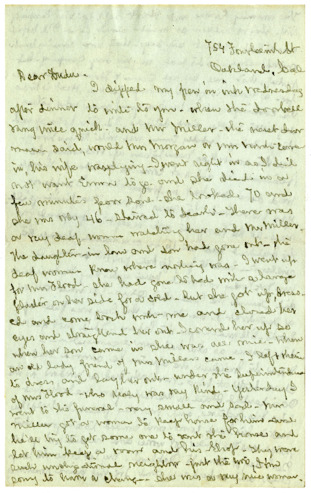 754 Fourteenth St
Oakland, Cal
Dear
I dipped my pen in ink Wednesday
after dinner to write to you - when the doorbell
rang twice quick - and Mr Miller - the next door
man said, would Mr Morgan or Mrs come
in, his wife was dying. I went right in as I did
not want Emma to go and she died in a
few minutes poor soul. She looked 70 and
she was only 46 - starved to death - There was
a very deaf woman watching her and Mr Miller.
The daughter-in-law and son had gone out - the
deaf woman knew where nothing was - I went up
for Mrs Flood - she had gone to bed with a large
on her side for a cold - but she got up, dress-
ed and came back with me and closed her
eyes and straightened her out. I covered her up so
when her son came in she was all nice - when
an old lady friend of Mrs Millers came - I left them
to dress and lay her out - under the
of Mrs Flood - who really was very kind - Yesterday I
went to the funeral - very small and sad. Mr
Miller got a woman to keep house for him and
he'll try to get some one to rent the house and
let him keep a room and his shop - They were
such neighbors - just the two, I am
sorry to have a change - She was a very nice woman